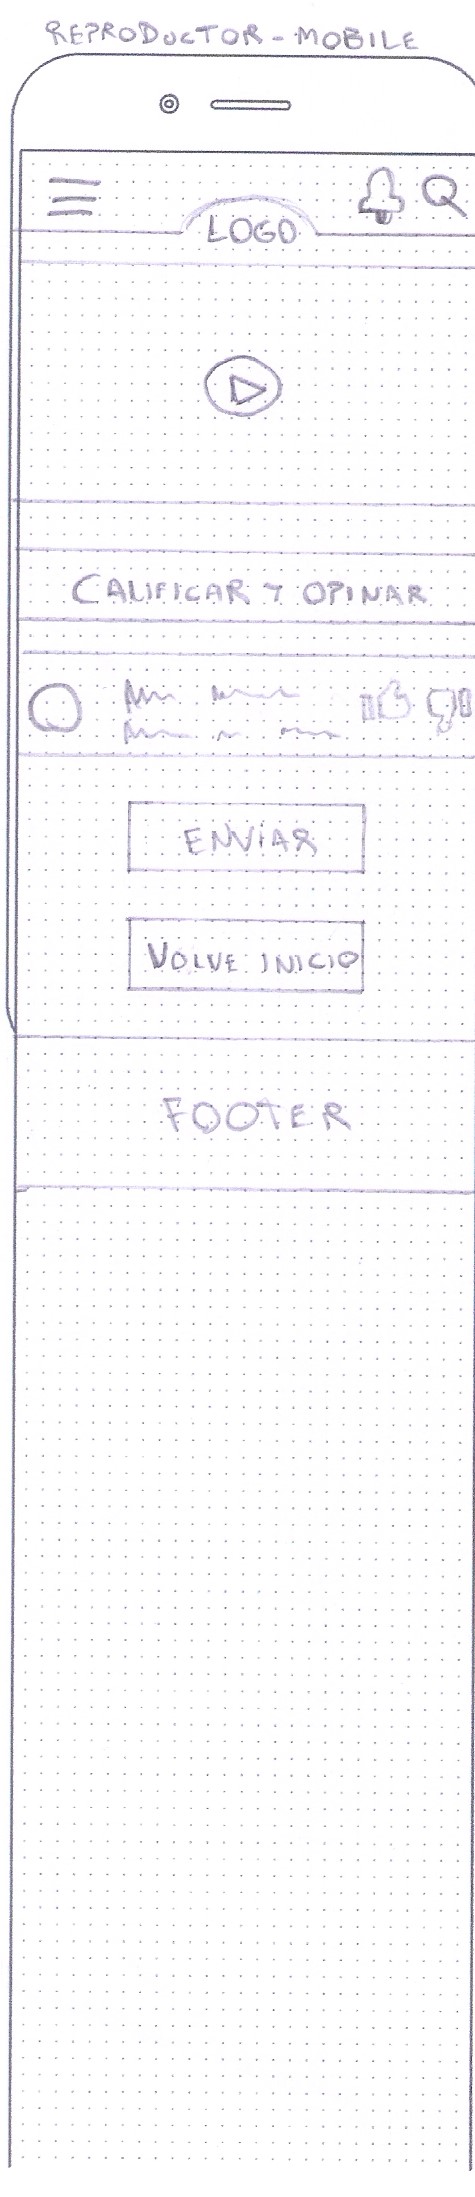 REPRODUCTOR - MOBILE
LOGO
CALIFICAR Y OPINAR
ENVIAR
VOLVE INICIO
FOOTER